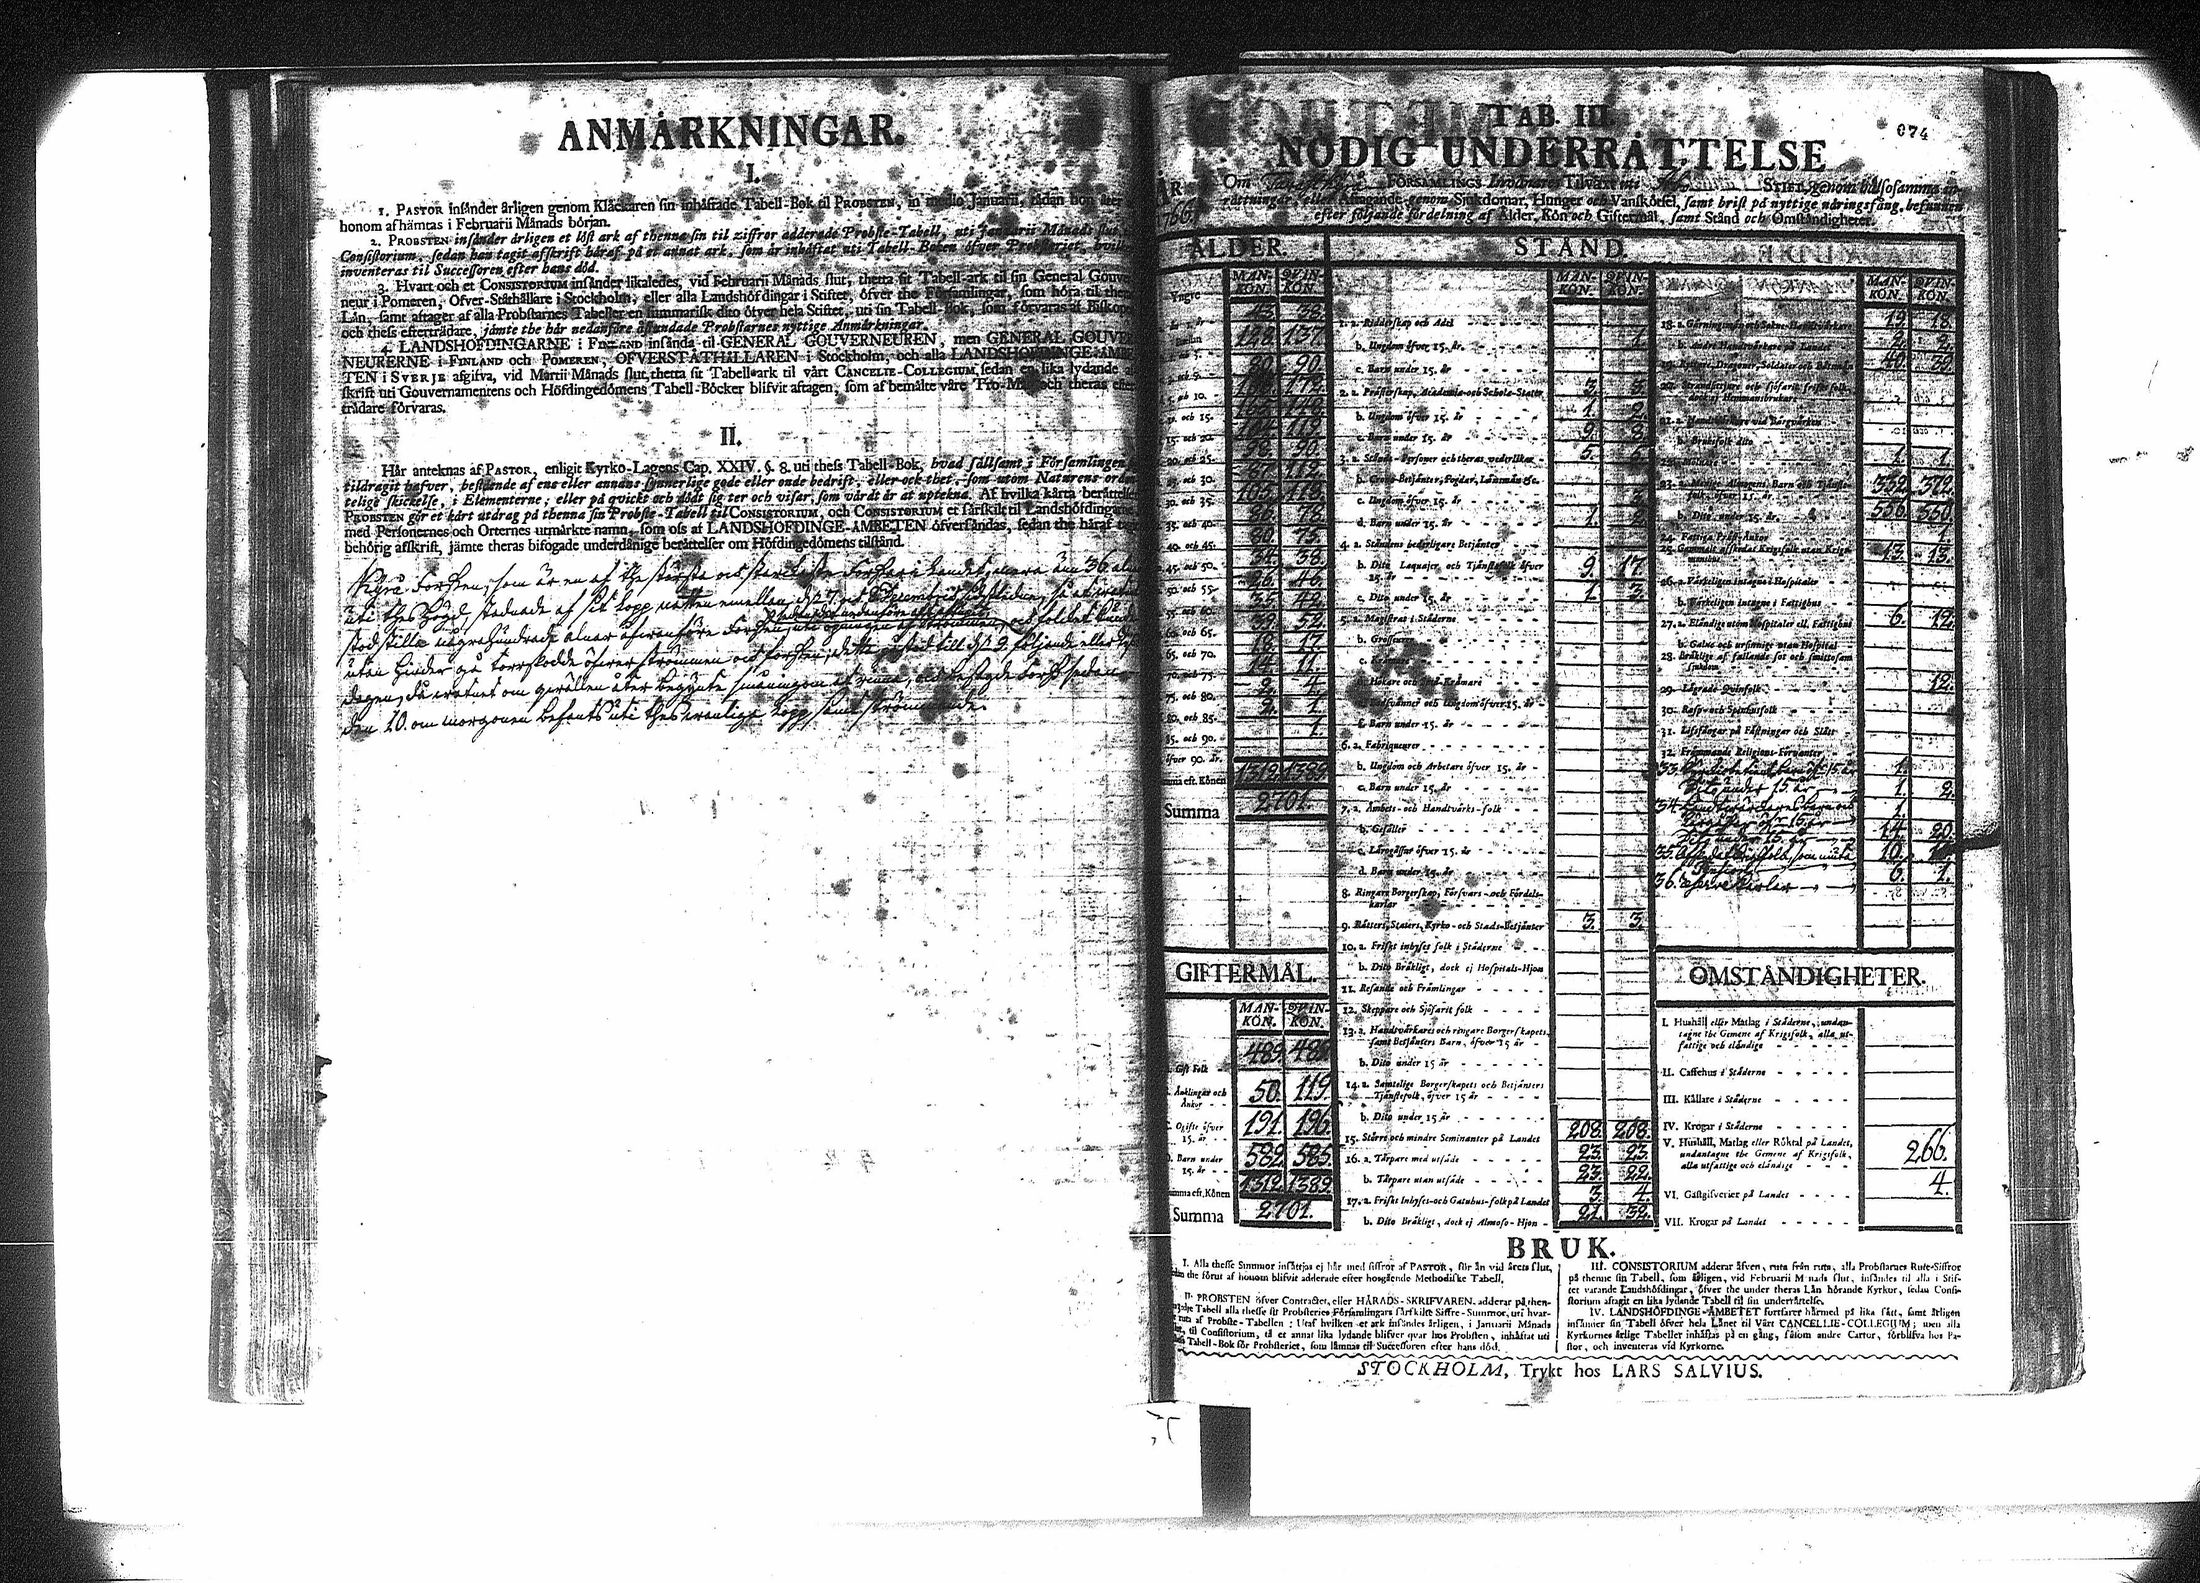 ANMÄRKNINGAR.
I.
1. PASTOR insänder årligen genom Klåckaren sin inhäftade Tabell-Bok til PROBSTEN, in medio Januarii, sådan hon åter
honom afhämtas i Februarii Månads början.
2. PROBSTEN insänder årligen et löst ark af thenna sin til ziffror adderade Probste-Tabell, uti Januarii Månads slut
Consistorium, sedan han tagit afskrift häraf på et annat ark, som är inhäftat uti Tabell-Boken öfver Probsteriet, hvilken
inventeras til Successoren efter hans död.
3. Hvart och et CONSISTORIUM insänder likaledes, vid Februarii Månads slut, thetta sit Tabell-ark til sin General Gouver
neur i Pomeren, Öfver-Ståthållare i Stockholm, eller alla Landshöfdingar i Stiftet, öfver the Församlingar, som höra til thes
Län, samt aftager af alla Probstarnes Tabeller en summarisk dito öfver hela Stiftet, uti sin Tabell-Bok, som förvaras af Biskopen
och thess efterträdare, jämte the här nedanföre åstundade Probstarnes nyttige Anmärkningar.
4. LANDSHÖFDINGARNE i FINLAND insända til GENERAL GOUVERNEUREN, men GENERAL GOUVER
NEURERNE i FINLAND och POMEREN, ÖFVERSTÅTHÅLLAREN i Stockholm, och alla LANDSHÖFDINGE-ÄMBE
TEN i SVERJE afgifva, vid Martii Månads slut, thetta sit Tabell-ark til vårt CANCELIE-COLLEGIUM, sedan en lika lydande af
skrift uti Gouvernamentens och Höfdingedömens Tabell-Böcker blifvit aftagen, som af bemälte våre Tro-Män och theras efter
trädare förvaras.
II.
Här anteknas af PASTOR, enligit Kyrko-Lagens Cap. XXIV. §. 8. uti thess Tabell-Bok, hvad sällsamt i Församlingen
tildragit hafver, bestående af ens eller annans synnerlige gode eller onde bedrift, eller ock thet, som utom Naturens orden
telige skickelse, i Elementerne, eller på qvickt och dödt sig ter och visar, som värdt är at uptekna. Af hvilka kårta berättelser
PROBSTEN gör et kårt utdrag på thenna sin Probste-Tabell til CONSISTORIUM, och CONSISTORIUM et särskilt til Landshöfdingarne
med Personernes och Orternes utmärkte namn, som oss af LANDSHÖFDINGE-ÄMBETEN öfversändas, sedan the häraf tagit
behörig afskrift, jämte theras bifogade underdånige berättelser om Höfdingedömens tilstånd.
Forssen, som är en af the största och starckaste Forssar i Landet, mera än 36 alnar
uti thes högd, stadnade af sit lopp natten emellan d. 7 och 8 Decembris
stod stilla några hundrade alnar ofvanföre Forssen, uti öpningen af strömmen, och folcket kunde
utan hinder gå torrskodde öfver strömmen och Forssen; detta påstod till d. 9 följande eller
dagen, då watnet om qwällen åter begynte småningom at rinna, och bestego Forssen sedan
den 10. om morgonen befants uti thes wanliga lopp samt strömmande.
TAB. III.
074
NÖDIG UNDERRÄTTELSE
ÅR
766.
Om FÖRSAMLINGS Invånares Tilväxt uti STIFT, genom hälsosamma in-
rättningar, eller Aftagande genom Sjukdomar, Hunger och Vanskötsel, samt brist på nyttige näringsfång, befunnen
efter följande fördelning af Ålder, Kön och Giftermål, samt Stånd och Omständigheter.
ÅLDER.
STÅND.
MAN-KÖN. QVIN-KÖN.
Yngre 43. 38.
128. 137.
80. 90.
5 och 10.
10 och 15.
15. och 20. 104. 119.
20. och 25. 98. 90.
25 och 30. 87. 112.
30. och 35. 103. 118.
35. och 40. 86. 78.
40. och 45. 80. 75.
45. och 50. 34. 38.
50. och 55. 26. 46.
55. och 60. 35. 42.
60. och 65. 39. 52.
65. och 70. 18. 17.
70. och 75. 14. 11.
75. och 80. 2. 4.
80. och 85. 2. 1.
85. och 90. 1.
öfver 90. år.
Summa eft. Könen 1312. 1389.
Summa 2701.
MAN-KÖN. QVIN-KÖN.
1. a. Ridderskap och Adel
b. Ungdom öfver 15. år 1.
c. Barn under 15. år
2. a. Prästerskap, Academia- och Schole-Stater 3. 3.
b. Ungdom öfver 15. år 1. 2.
c. Barn under 15. år 9. 8.
3. a. Stånds-Personer och theras vederlikar 5. 6.
b. Crono-Betjänter, Fogdar, Länsmän &c.
c. Ungdom öfver 15. år
d. Barn under 15. år 1. 2.
4. a. Ståndens hederligare Betjänter
b. Dito Laquajer och Tjänstefolk öfver 15. år 9. 17.
c. Dito under 15. år 1. 3.
5. a. Magistrat i Städerne
b. Grosseurer
c. Krämare
d. Hökare och små Krämare
e. Bodsvänner och Ungdom öfver 15. år
f. Barn under 15. år
6. a. Fabriqueurer
b. Ungdom och Arbetare öfver 15. år
c. Barn under 15. år
7. a. Ämbets- och Handtvärks-folk
b. Gesäller
c. Lärogåssar öfver 15. år
d. Barn under 15. år
8. Ringare Borgerskap, Försvars- och Fördels-karlar
9. Rätters, Staters, Kyrko- och Stads-Betjänter 3. 3.
10. a. Friskt inhyses folk i Städerne
b. Dito Bräkligt, dock ej Hospitals-Hjon
11. Resande och Främlingar
12. Skeppare och Sjöfarit folk
13. a. Handtvärkares och ringare Borgerskapets, samt Betjänters Barn, öfver 15 år
b. Dito under 15 år
14. a. Samtelige Borgerskapets och Betjänters Tjänstefolk, öfver 15 år
b. Dito under 15 år
15. Större och mindre Seminanter på Landet 208. 208.
16. a. Tårpare med utsäde 23. 23.
b. Tårpare utan utsäde 23. 22.
17. a. Friskt Inhyses- och Gatuhus-folk på Landet 3. 4.
b. Dito Bräkligt, dock ej Almoso-Hjon 21. 32.
MAN-KÖN. QVIN-KÖN.
18. a. Gärningsmän och Sokne-Handtvärkare 19. 18.
b. Andre Handtvärkare på Landet 2. 2.
19. Ryttare, Dragoner, Soldater och Båtsmän 40. 39.
20. Strandsittare och sjöfarit friskt folk, dock ej Hemmansbrukare
21. a. Handtvärkare vid Bärgvärken
b. Bruksfolk dito
22. Mölnare 1. 1.
23. a. Menige Allmogens Barn och Tjänstefolk, öfver 15 år 352. 372.
b. Dito under 15. år. 556. 550.
24. Fattiga Präst-Änkor 1.
25. Gammalt afskedat Krigsfolk utan Krigsmanshus 13. 13.
26. a. Värkeligen intagne i Hospitaler
b. Värkeligen intagne i Fattighus
27. a. Eländige utom Hospitaler ell. Fattighus 6. 12.
b. Galne och ursinnige utan Hospital
28. Bräklige af fallande sot och smittosam sjukdom
29. Lägrade Qvinfolk 12.
30. Rasp- och Spinhusfolk
31. Lifsfångar på Fästningar och Slått
32. Främmande Religions-Förvanter
33. barn öfr 15 år 1.
Dito under 15 år 1. 2.
34. barn och 1.
öfr 15 år 14. 20.
Dito under 15 år 10.
35. som
36. 6. 1.
GIFTERMÅL.
MAN-KÖN. QVIN-KÖN.
Gift Folk 489. 489.
Änklingar och Änkor 50. 119.
Ogifte öfver 15. år 191. 196.
Barn under 15. år 582. 585.
Summa eft. Könen 1312. 1389.
Summa 2701.
OMSTÄNDIGHETER.
I. Hushåll eller Matlag i Städerne, undantagne the Gemene af Krigsfolk, alla utfattige och eländige
II. Caffehus i Städerne
III. Källare i Städerne
IV. Krogar i Städerne
V. Hushåll, Matlag eller Röktal på Landet, undantagne the Gemene af Krigsfolk, alla utfattige och eländige 266.
VI. Gästgifverier på Landet 4.
VII. Krogar på Landet
BRUK.
I. Alla thesse Summor insättjas ej här med siffror af PASTOR, för än vid årets slut,
sedan the förut af honom blifvit adderade efter hosgående Methodiske Tabell.
II. PROBSTEN öfver Contractet, eller HÄRADS-SKRIFVAREN, adderar på then-
Tabell alla thesse sit Probsteries Församlingars särskilte Siffre-Summor, uti hvar-
ruta af Probste-Tabellen: Utaf hvilken et ark insändes årligen, i Januarii Månads
til Consistorium, tå et annat lika lydande blifver qvar hos Probsten, inhäftat uti
Tabell-Bok för Probsteriet, som lämnas til Successoren efter hans död.
III. CONSISTORIUM adderar äfven, ruta från ruta, alla Probstarnes Rute-Siffror
på thenne sin Tabell, som årligen, vid Februarii Månads slut, insändes til alla i Stif-
tet varande Landshöfdingar, öfver the under theras Län hörande Kyrkor, sedan Consi-
storium aftagit en lika lydande Tabell til sin underrättelse.
IV. LANDSHÖFDINGE-ÄMBETET fortfarer härmed på lika sätt, samt årligen
insänder sin Tabell öfver hela Länet til Vårt CANCELLIE-COLLEGIUM; men alla
Kyrkornes årlige Tabeller inhäftas på en gång, såsom andre Cartor, förblifva hos Pa-
stor, och inventeras vid Kyrkorne.
STOCKHOLM, Trykt hos LARS SALVIUS.